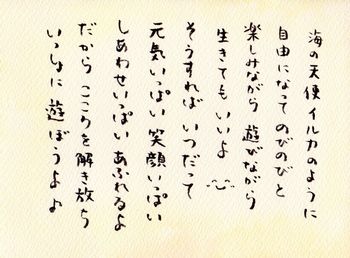 海の天使イルカのように
自由になってのびのびと
楽しみながら 遊びながら
生きてもいいよ
そうすれば いつだって
元気いっぱい 笑顔いっぱい
しあわせいっぱい あふれるよ
だから こころを解き放ち
いっしょに 遊ぼうよ♪